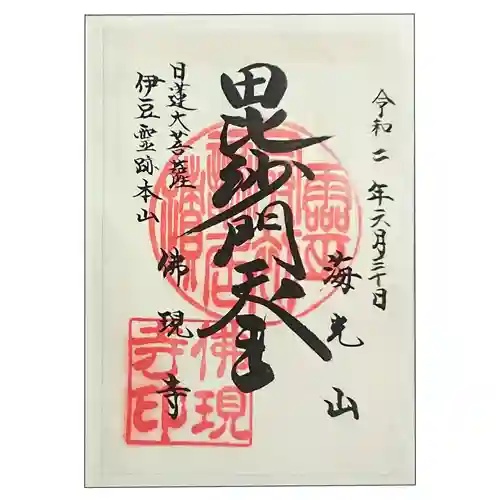 令和二年六月三十日
海光山
毘沙門天王
佛現寺
日蓮大菩薩
伊豆霊跡本山
佛現寺印